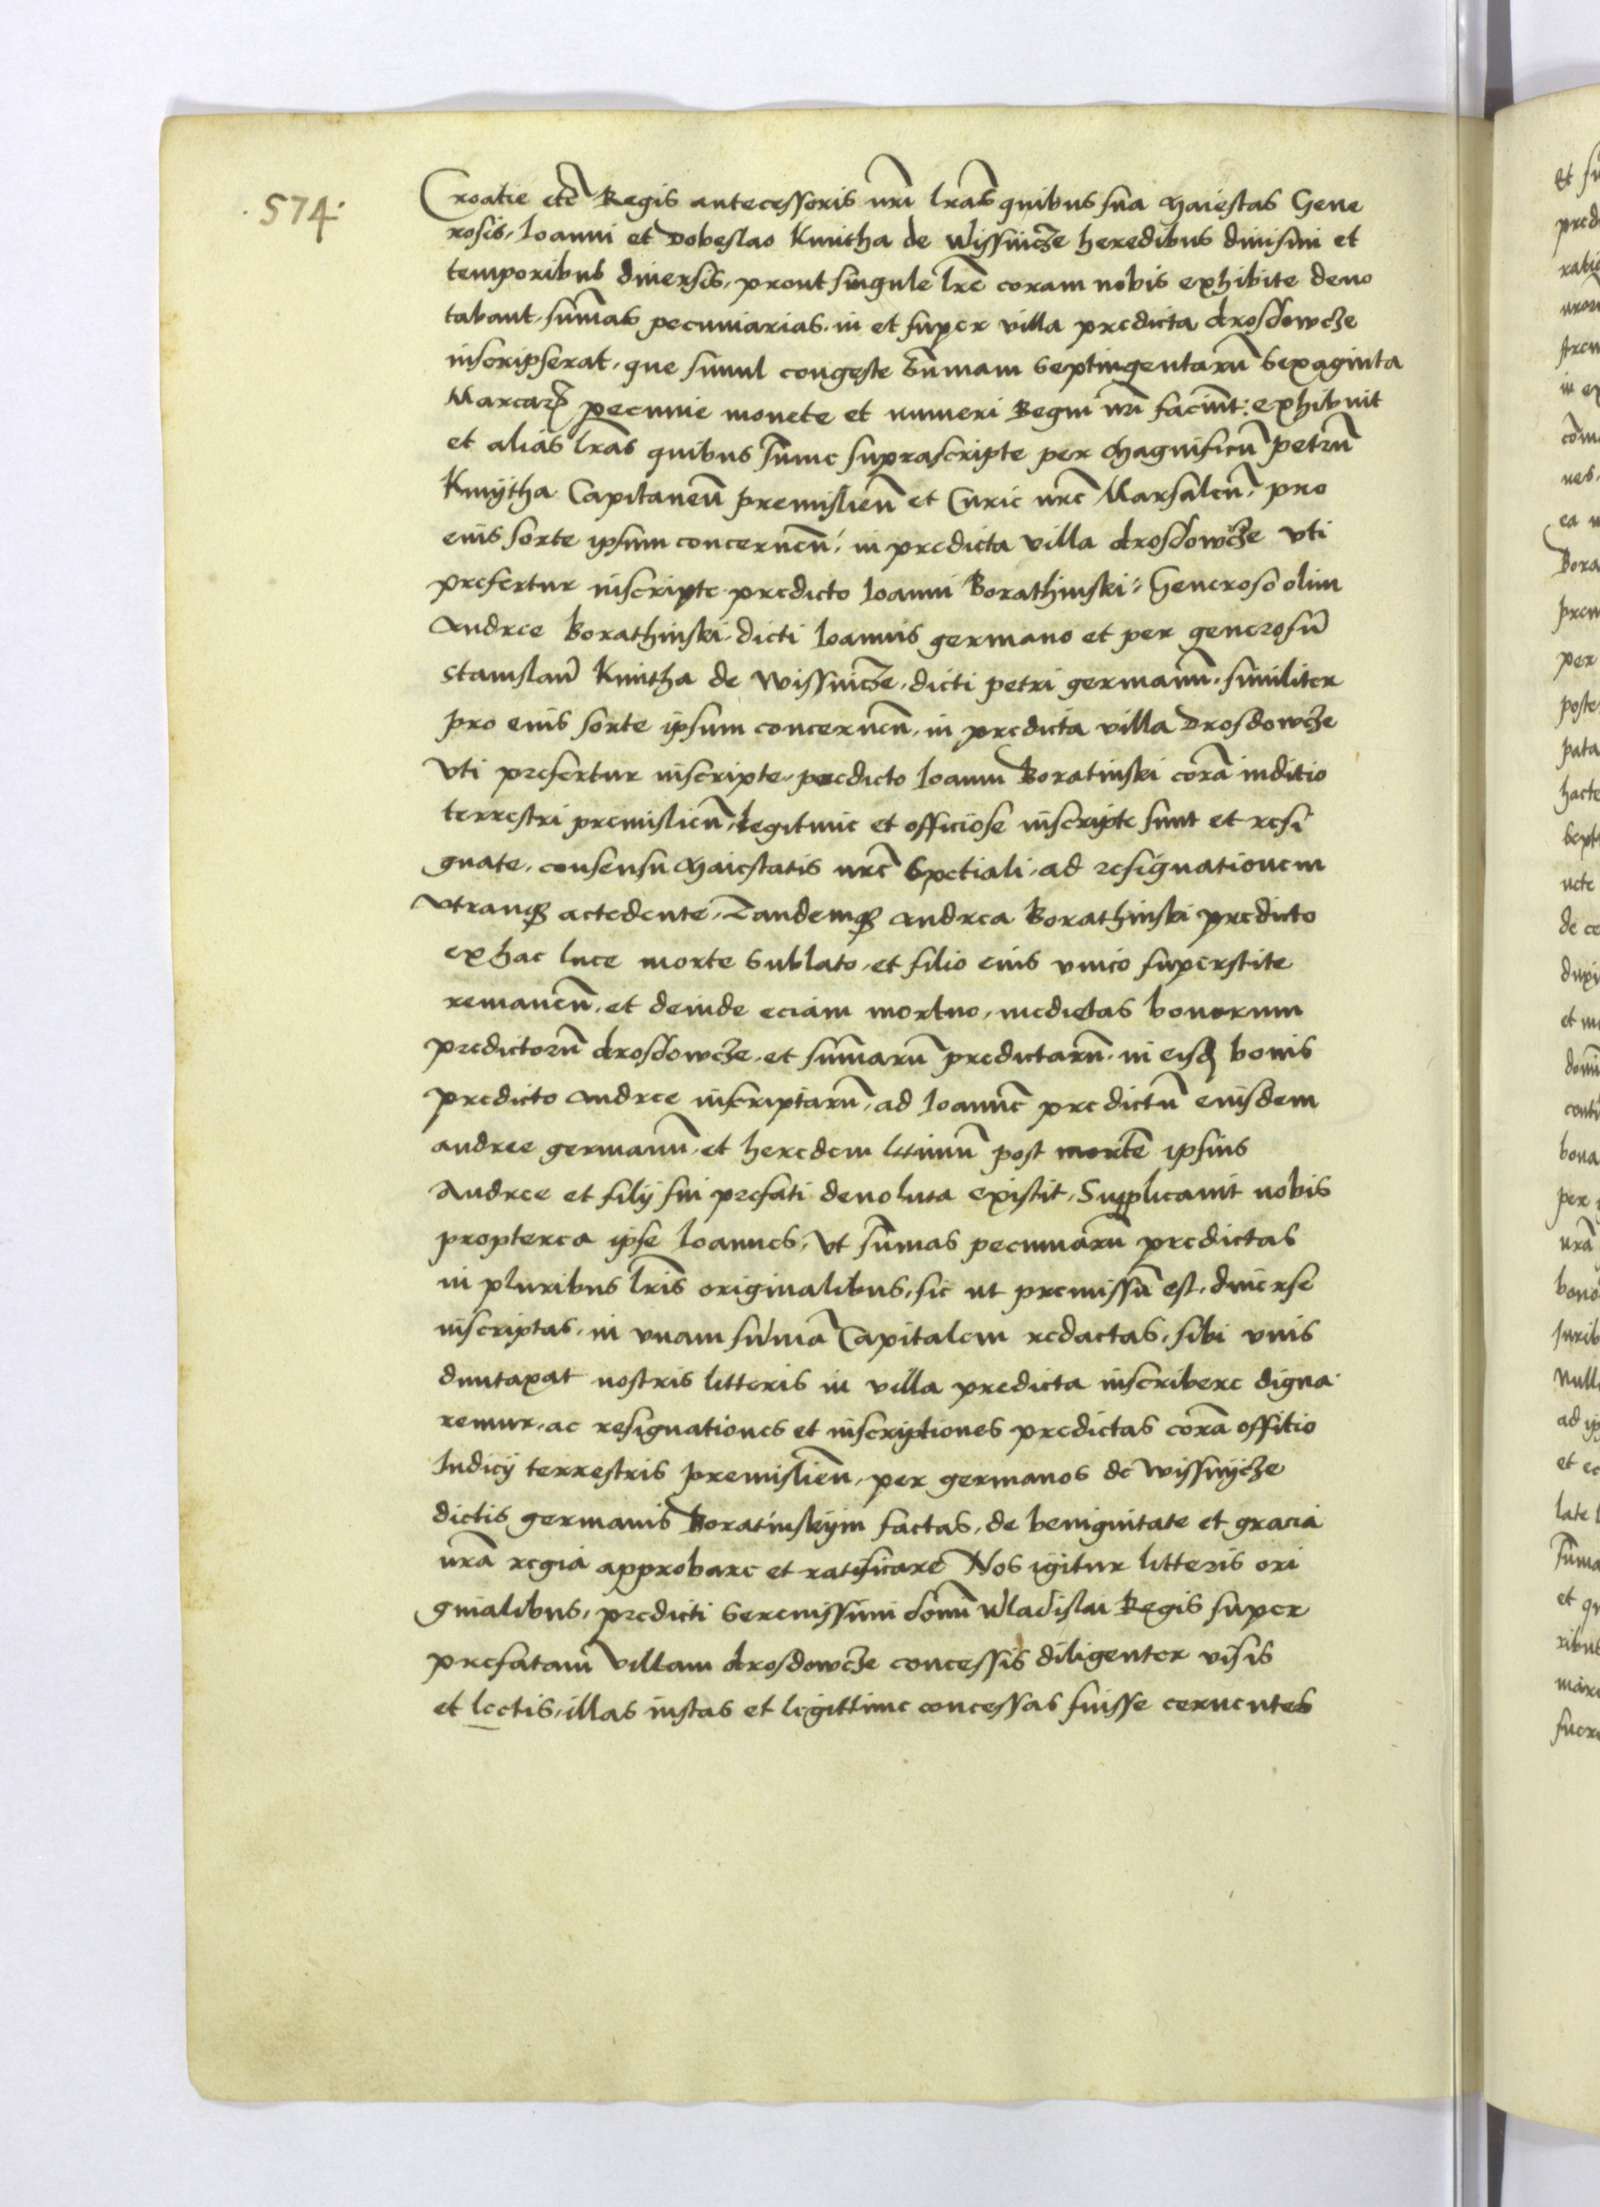 ·574·
Croatie etc̃ Regis antecessoris nr̃i lr̃as quibus sua Maiestas Gene
rosis, Ioanni et Dobeslao Kmitha de Wissnicze heredibus diuisim et
temporibus diuersis, prout singule lr̃e coram nobis exhibite deno
tabant, sum̃as pecuniarias, in et super villa predicta drosdowcze
inscripserat, que simul congeste Sum̃am Septingentarũ Sexaginta
Marcarꝝ pecunie monete et numeri Regni nr̃i faciũt: exhibuit
et alias lr̃as quibus sum̃e suprascripte per Magnificũ petrũ
Kmytha Capitaneũ premislieñ et Curie nr̃e Marsalcũ, pro
eius sorte ipsum concerneñ, in predicta villa drosdowcze vti
prefertur inscripte predicto Ioanni Borathinski: Generoso olim
Andree Borathinski dicti Ioannis germano et per generosũ
Stanislaũ Kmitha de Wissnicze, dicti petri germanũ, similiter
pro eius sorte ipsum concerneñ, in predicta villa Drosdowcze
Vti prefertur inscripte, predicto Ioanni Boratinski corã iuditio
terrestri premislieñ, legitime et officiose inscripte sunt et resi
gnate, consensu Maiestatis nr̃e Spetiali, ad resignationem
Vtranqꝫ actedente, Tandemqꝫ Andrea Borathinski predicto
ex hac luce morte sublato, et filio eius vnico superstite
remaneñ, et deinde eciam mortuo, medietas bonorum
predictorũ drosdowcze, et sum̃arũ predictarũ, in eisd̃ bonis
predicto Andree inscriptarũ, ad Ioannẽ predictũ eiusdem
andree germanũ, et heredem l̃timũ post mortẽ ipsius
Andree et filij sui prefati deuoluta existit, Supplicauit nobis
propterea ipse Ioannes, Vt sum̃as pecuniarũ predictas
in pluribus lr̃is originalibus, sic ut premissũ est, diuerse
inscriptas, in vnam sum̃ã Capitalem redactas, sibi vnis
duntaxat nostris litteris in villa predicta inscribere digna
remur, ac resignationes et inscriptiones predictas corã offitio
Iudicij terrestris premislieñ, per germanos de Wissnycze
dictis germanis Boratinskym factas, de benignitate et gracia
nr̃a regia approbare et ratificare Nos igitur litteris ori
ginalibus, predicti Serenissimi domĩ Wladislai Regis super
prefatam villam drosdowcze concessis diligenter visis
et lectis, illas iustas et legittime concessas fuisse cernentes